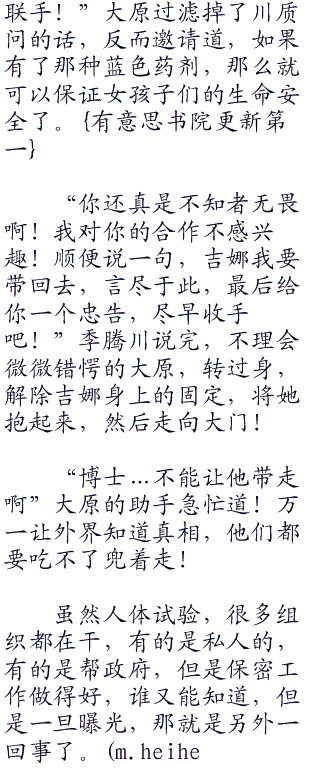 联手！”大原过滤掉了川质
问的话，反而邀请道，如果
有了那种蓝色药剂，那么就
可以保证女孩子们的生命安
全了。{有意思书院更新第
一}
“你还真是不知者无畏
啊！我对你的合作不感兴
趣！顺便说一句，吉娜我要
带回去，言尽于此，最后给
你一个忠告，尽早收手
吧！”季腾川说完，不理会
微微错愕的大原，转过身，
解除吉娜身上的固定，将她
抱起来，然后走向大门！
“博士…不能让他带走
啊”大原的助手急忙道！万
一让外界知道真相，他们都
要吃不了兜着走！
虽然人体试验，很多组
织都在干，有的是私人的，
有的是帮政府，但是保密工
作做得好，谁又能知道，但
是一旦曝光，那就是另外一
回事了。(m.heihe